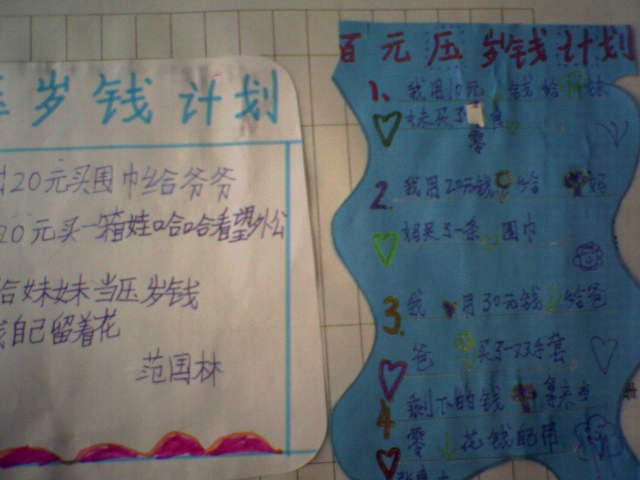 岁钱计划
20元买围巾给爷爷
20元买一箱娃哈哈看望外公
给妹妹当压岁钱
自己留着花
范国林
百元压岁钱计划
1、我用10元钱给妹
妹买了零食
2、我用20元钱给妈
妈买了一条围巾
3、我用30元钱给爸
爸买了一双手套
4 剩下的钱拿来当
零花钱